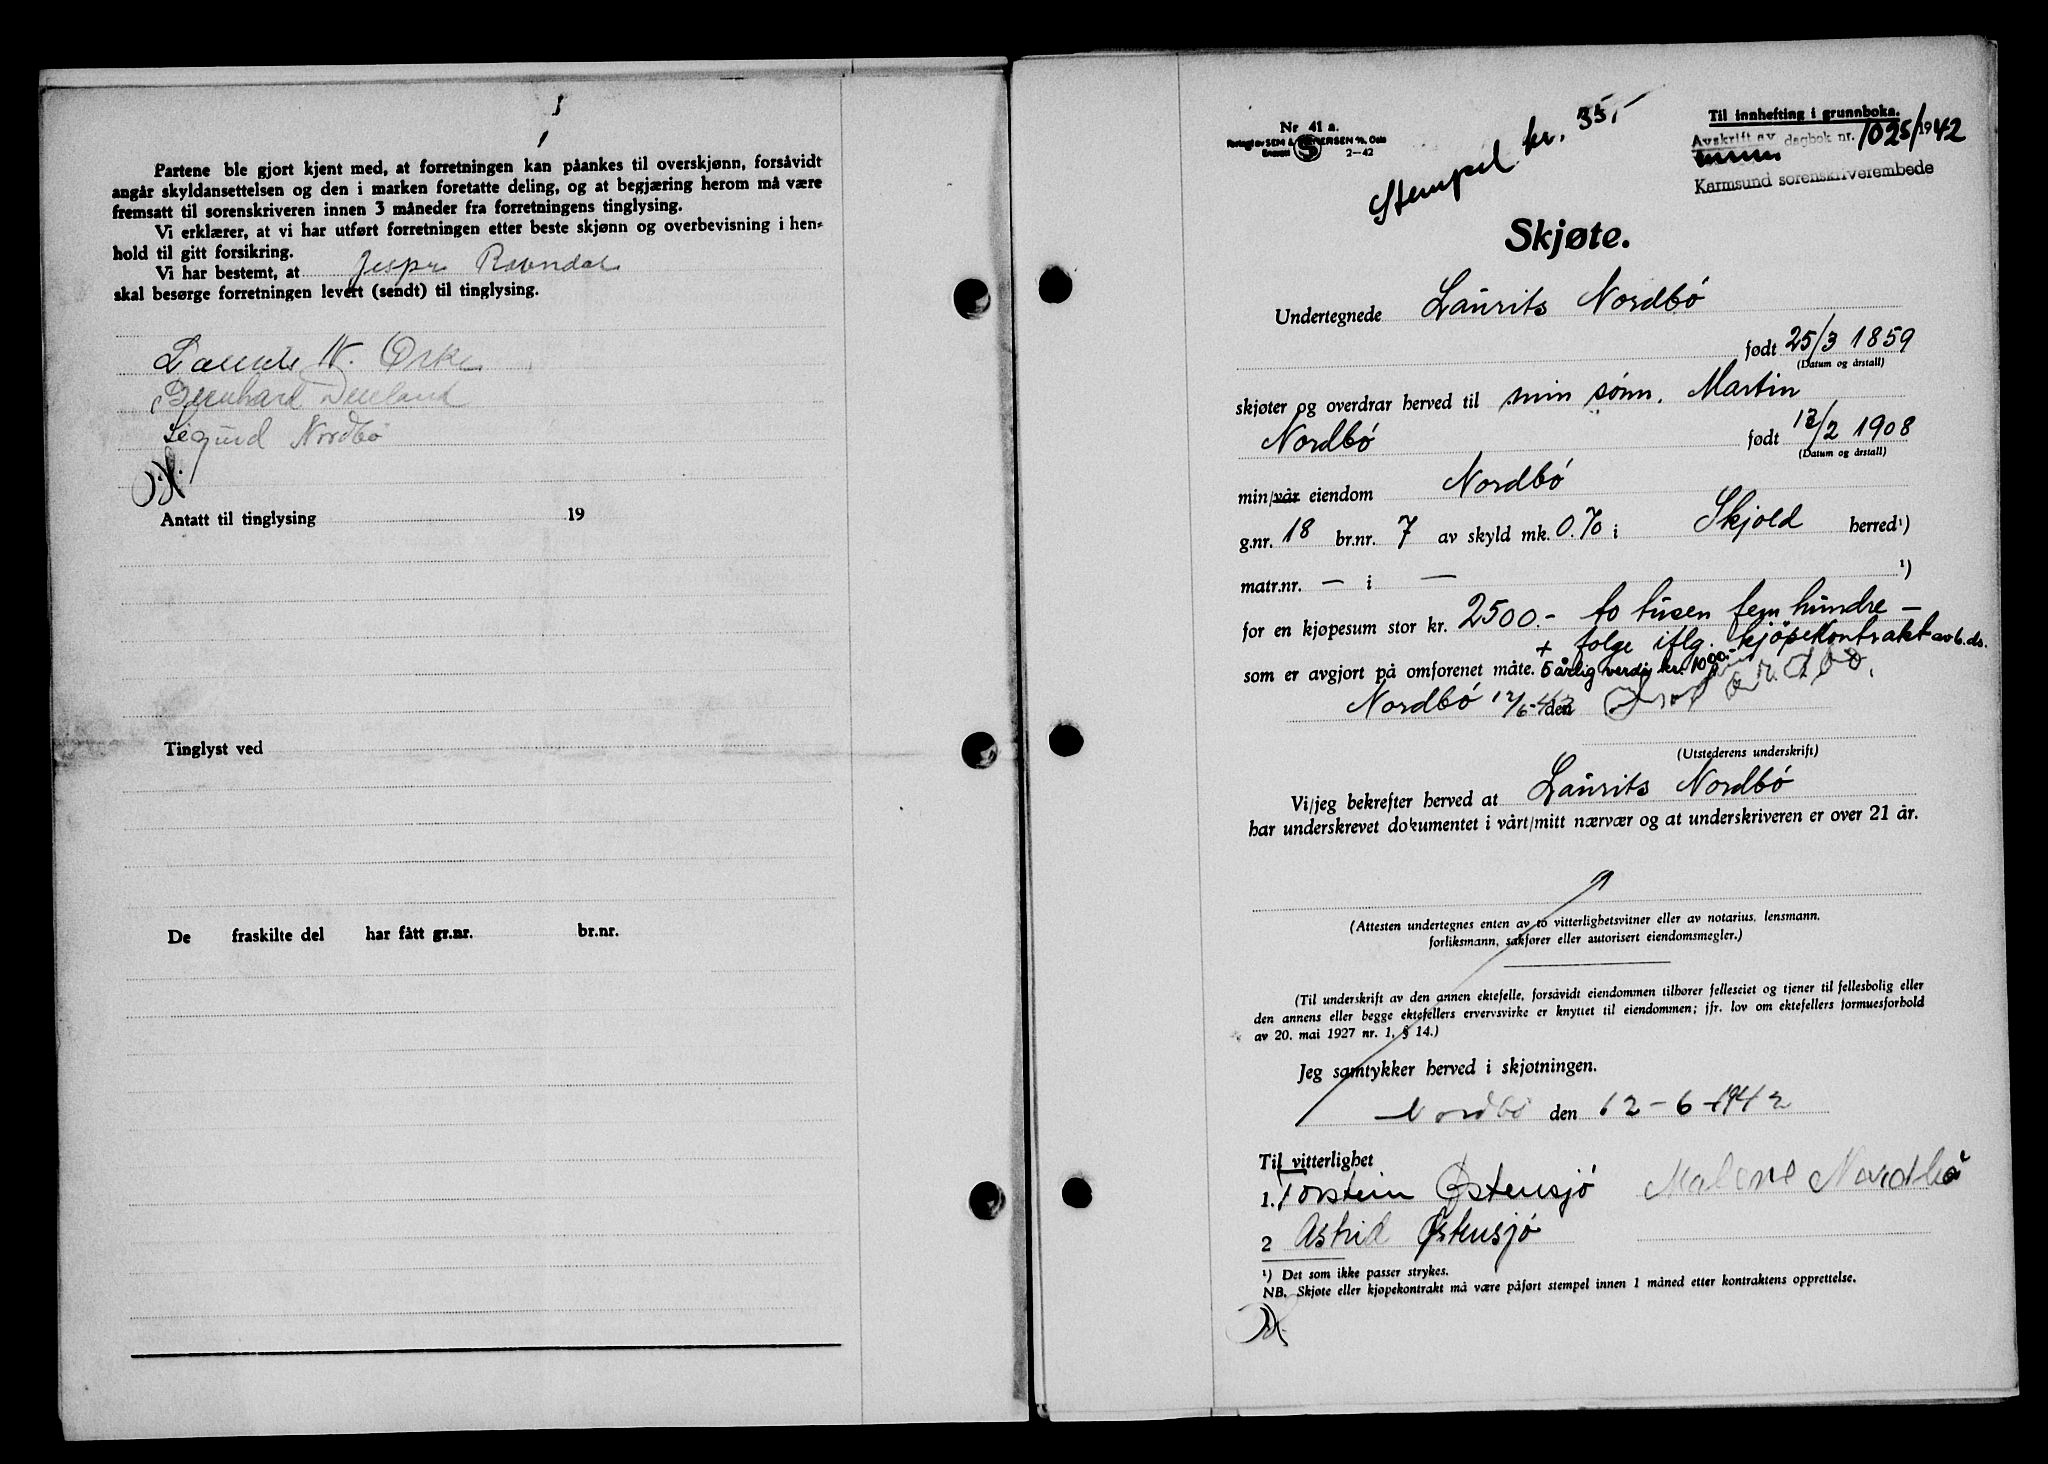 Partene ble gjort kjent med, at forretningen kan påankes til overskjønn, forsåvidt
angår skyldansettelsen og den i marken foretatte deling, og at begjæring herom må være
fremsatt til sorenskriveren innen 3 måneder fra forretningens tinglysing.
Vi erklærer, at vi har utført forretningen etter beste skjønn og overbevisning i hen-
hold til gitt forsikring.
Vi har bestemt, at Jesper Ravndal
skal besørge forretningen levert (sendt) til tinglysing.
N.
Bernhard
Sigurd Nordbø
Antatt til tinglysing 19
Tinglyst ved
De fraskilte del har fått gr.nr. br.nr.
Nr 41 a.
2-42
Stempel kr. 35,-
Til innhefting i grunnboka.
Avskrift av dagbok nr. 1025/1942
Karmsund sorenskriverembede
Skjøte.
Undertegnede Laurits Nordbø
født 25/3 1859
(Datum og årstall)
skjøter og overdrar herved til min sønn, Martin
Nordbø født 12/2 1908
(Datum og årstall)
min/vår eiendom Nordbø
g.nr. 18 br.nr. 7 av skyld mk. 0.70 i Skjold herred¹)
matr.nr. — i — ¹)
for en kjøpesum stor kr. 2500.- to tusen fem hundre —
+ folge iflg. kjøpekontrakt av b.ds.
som er avgjort på omforenet måte. 5 årlig verdi kr. 1000.-
Nordbø 12/6-42 den
(Utstederens underskrift)
Vi/jeg bekrefter herved at Laurits Nordbø
har underskrevet dokumentet i vårt/mitt nærvær og at underskriveren er over 21 år.
(Attesten undertegnes enten av to vitterlighetsvitner eller av notarius, lensmann,
forliksmann, sakfører eller autorisert eiendomsmegler.)
(Til underskrift av den annen ektefelle, forsåvidt eiendommen tilhører felleseiet og tjener til fellesbolig eller
den annens eller begge ektefellers ervervsvirke er knyttet til eiendommen; jfr. lov om ektefellers formuesforhold
av 20. mai 1927 nr. 1, § 14.)
Jeg samtykker herved i skjøtningen.
Nordbø den 12-6-1942
Til vitterlighet
1. Torstein Østensjø Malene Nordbø
2 Astrid Østensjø
¹) Det som ikke passer strykes.
NB. Skjøte eller kjøpekontrakt må være påført stempel innen 1 måned etter kontraktens opprettelse.